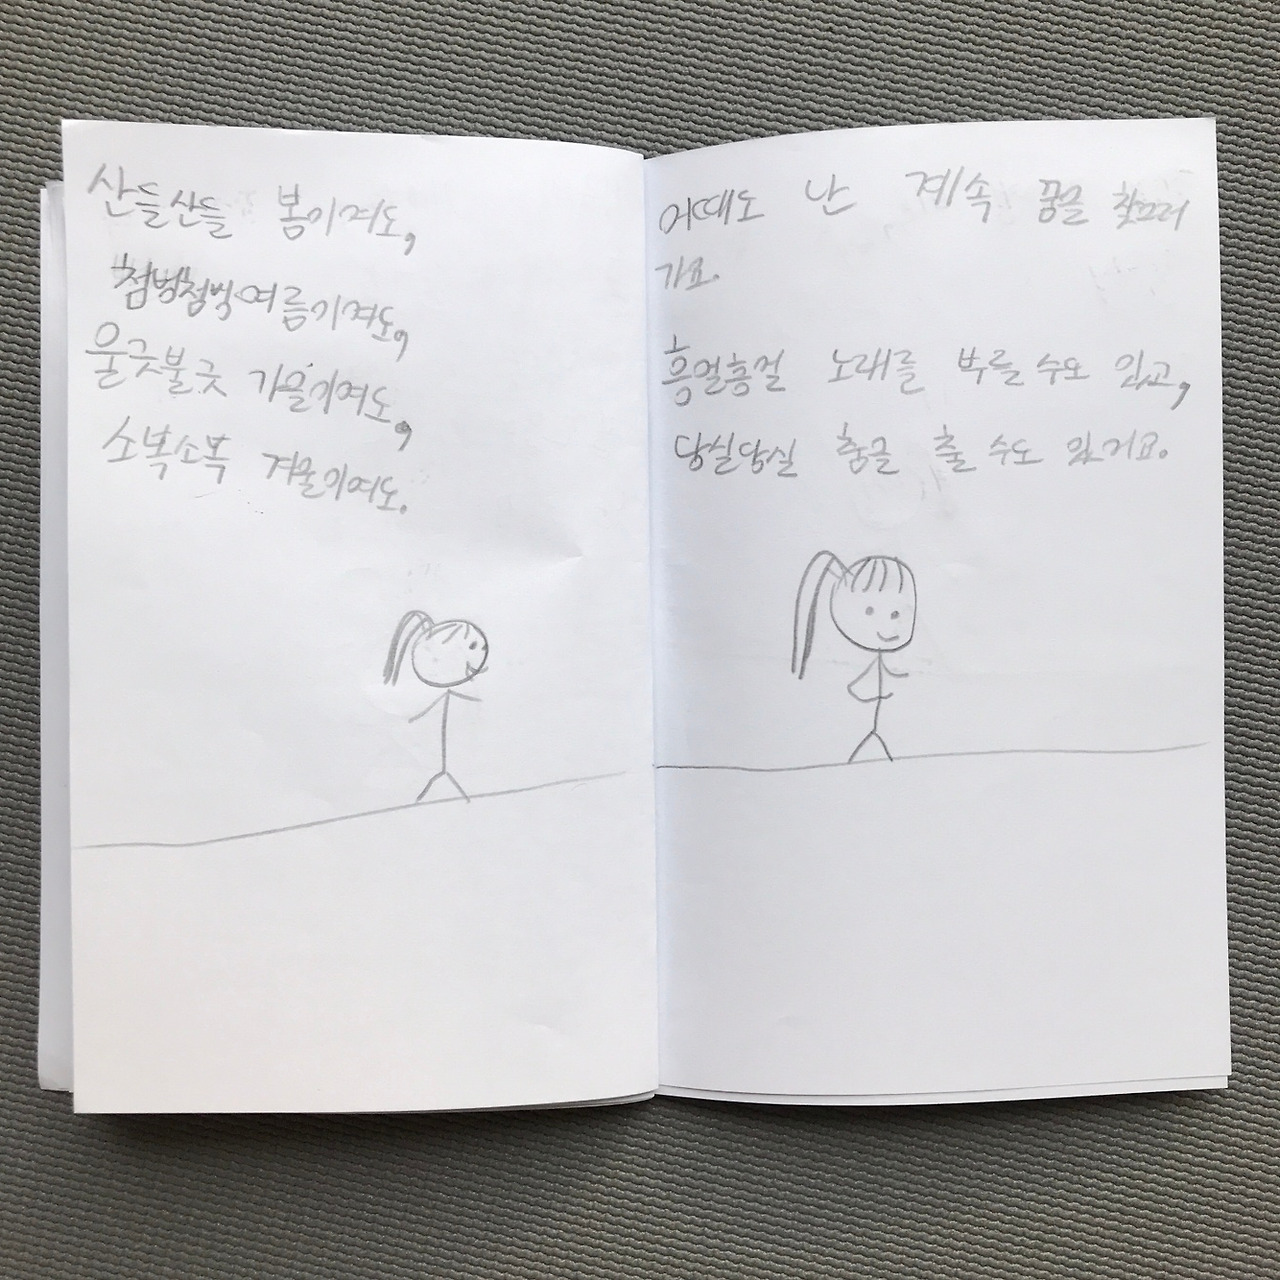 산들산들 봄이여도,
첨벙첨벙 여름이여도,
울긋불긋 가을이여도,
소복소복 겨울이여도.
어때도 난 계속 꿈을 찾으러
가요.
흥얼흥얼 노래를 부를 수도 있고,
덩실덩실 춤을 출 수도 있거요.